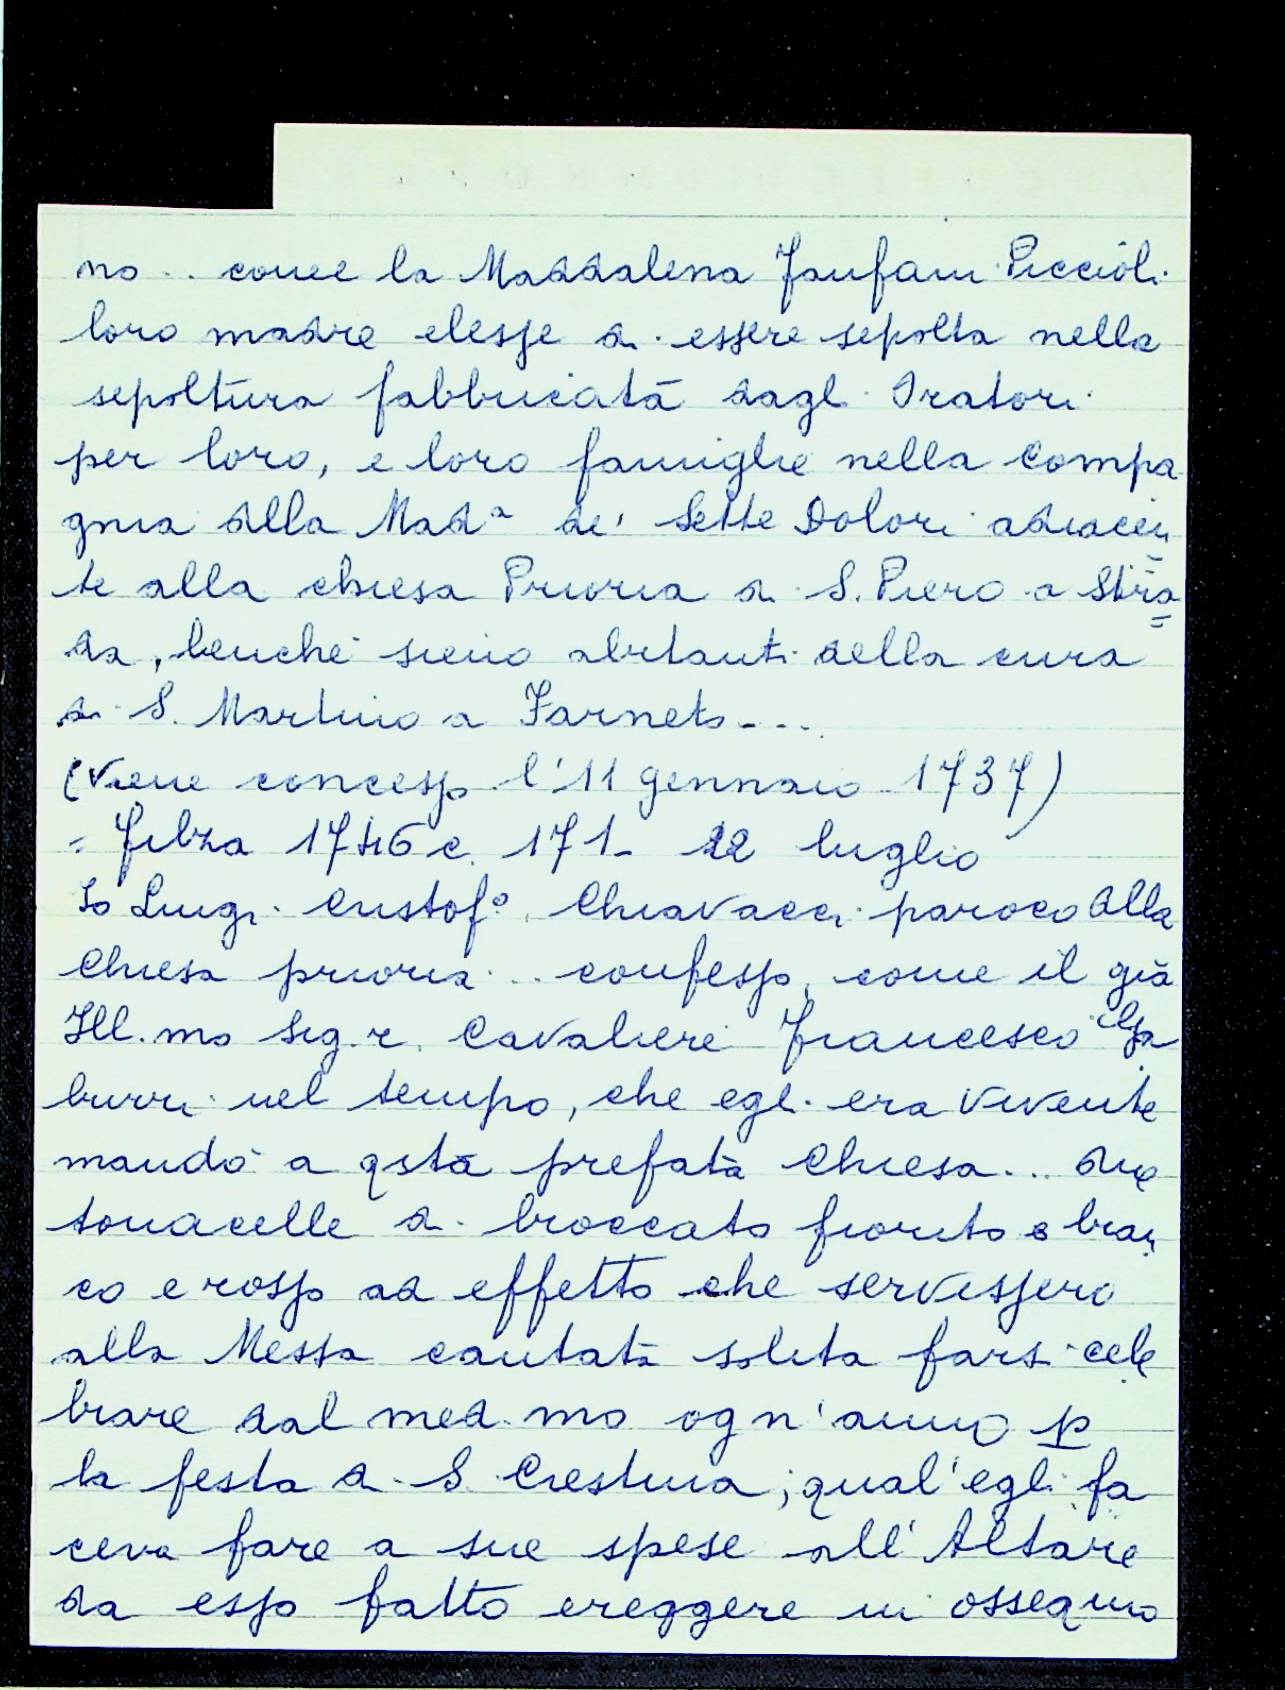 no .. come la Maddalena Fanfani Piccioli
loro madre elesse di essere sepolta nella
sepoltura fabbricata dagl'Oratori
per loro, e loro famiglie nella Compa
gnia della Mad.ª de' Sette Dolori adiacen
te alla chiesa Prioria di S. Piero a Stra=
da, benchè sieno abitanti della cura
di S. Martino a Farneto...
(Viene concesso l'11 gennaio 1737)
= filza 1746 c. 171- 22 luglio
Io Luigi Cristof.º Chiavacci paroco della
Chiesa prioria .. confesso, come il già
Ill.mo Sig.r. Cavaliere Francesco Ga
burri nel tempo, che egli era vivente
mandò a qsta prefata Chiesa... due
tonacelle di broccato fiorito bian
co e rosso ad effetto che servissero
alla Messa cantata solita farsi cele
brare dal med.mo ogn'anno p
la festa di S. Crestina, qual'egli fa
ceva fare a sue spese all'Altare
da esso fatto ereggere in ossequio